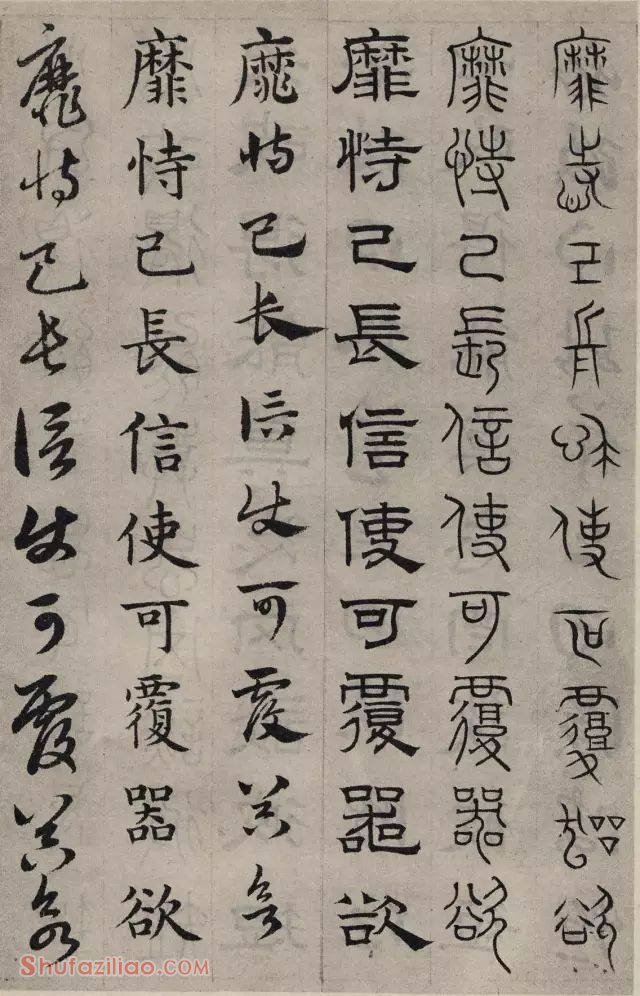 靡恃己長信使可覆器欲
靡恃己長信使可覆器欲
靡恃己長信使可覆器欲
靡恃己长信使可覆器欲
靡恃己長信使可覆器欲
靡恃己长信使可覆器欲
Shufaziliao.com